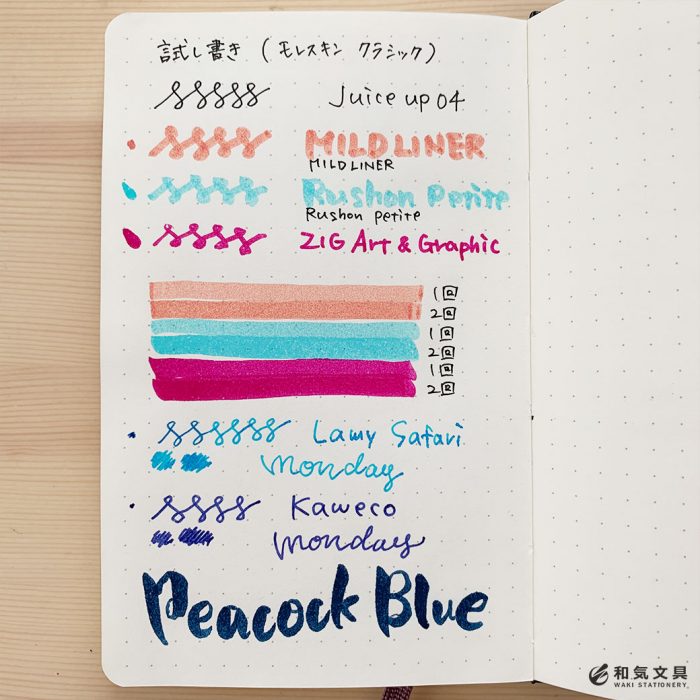 試し書き (モレスキン クラシック)
Juice up 04
MILDLINER
MILDLINER
Rushon Petite
Rushon Petite
ZIG Art & Graphic
1回
2回
1回
2回
1回
2回
Lamy Safari
monday
Kaweco
monday
Peacock Blue
和気文具
WAKI STATIONERY.